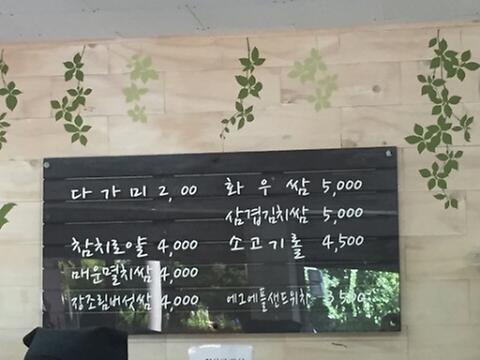 다가미 2,00 화우쌈 5,000
삼겹김치쌈 5,000
참치로얄 4,000 소고기롤 4,500
매운멸치쌈 4,000
장조림버섯쌈 4,000 에그에플샌드위치 3,500